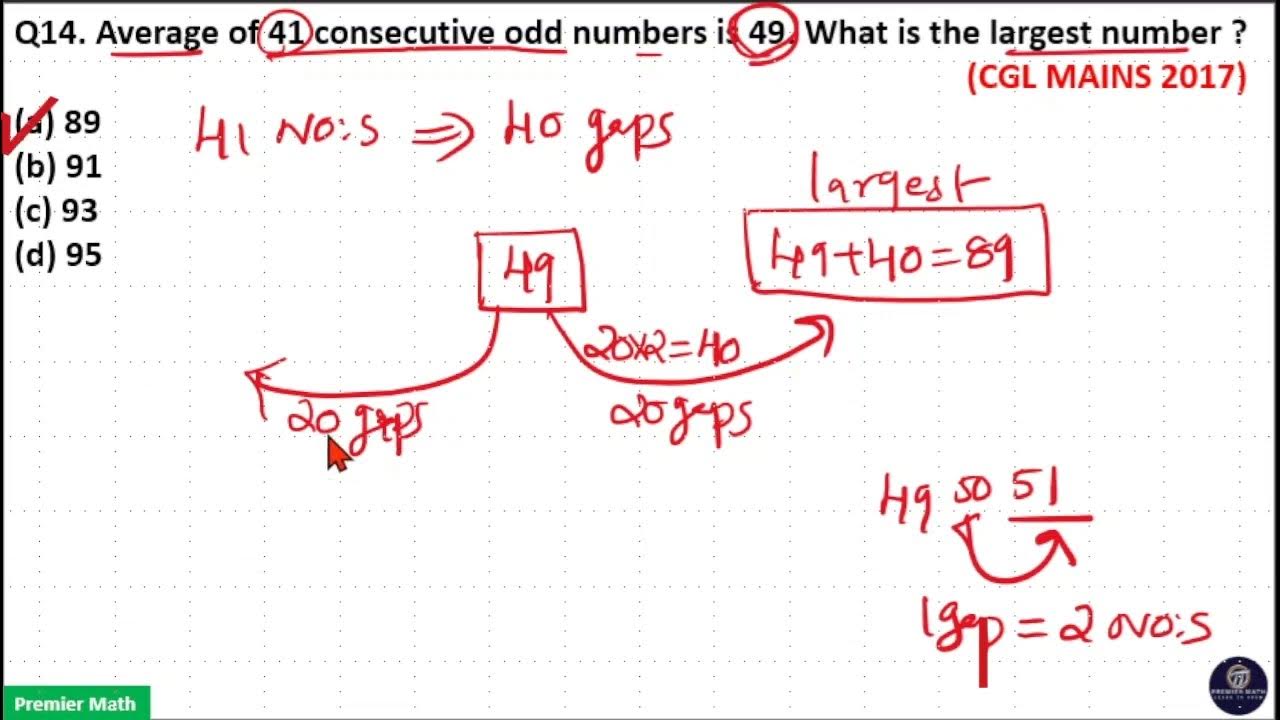 Q14. Average of 41 consecutive odd numbers is 49. What is the largest number ?
(CGL MAINS 2017)
(a) 89
(b) 91
(c) 93
(d) 95
41 No:s ⇒ 40 gaps
largest
49+40=89
49
20×2=40
20 gaps
20 gaps
49 50 51
1gap = 2 No:s
Premier Math
PREMIER MATH
LEARN TO KNOW